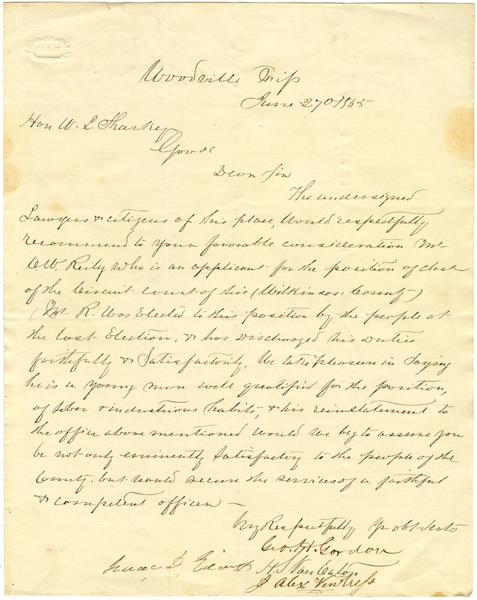 Woodville Miss
June 27th 1865
Hon W. L. Sharkey
Gov &c
Dear Sir
The undersigned
Lawyers & citizens of this place, would respectfully
recommend to your favorable consideration Mr
C W. Reily who is an applicant for the position of clerk
of the Circuit court of this (Wilkinson County)
Mr. R. was elected to this position by the people at
the last Election, & has discharged his duties
faithfully & Satisfactorily, We take pleasure in saying
he is a young man well qualified for the position,
of sober & industrious habits, & his reinstatement to
the office above mentioned would we beg to assure you
be not only eminently satisfactory to the people of the
County. but would secure the services of a faithful
& competent officer —
Very Respectfully Yr obt Svts
Geo. H. Gordon
H. S. Van Eaton
J Alex Ventress
Isaac D